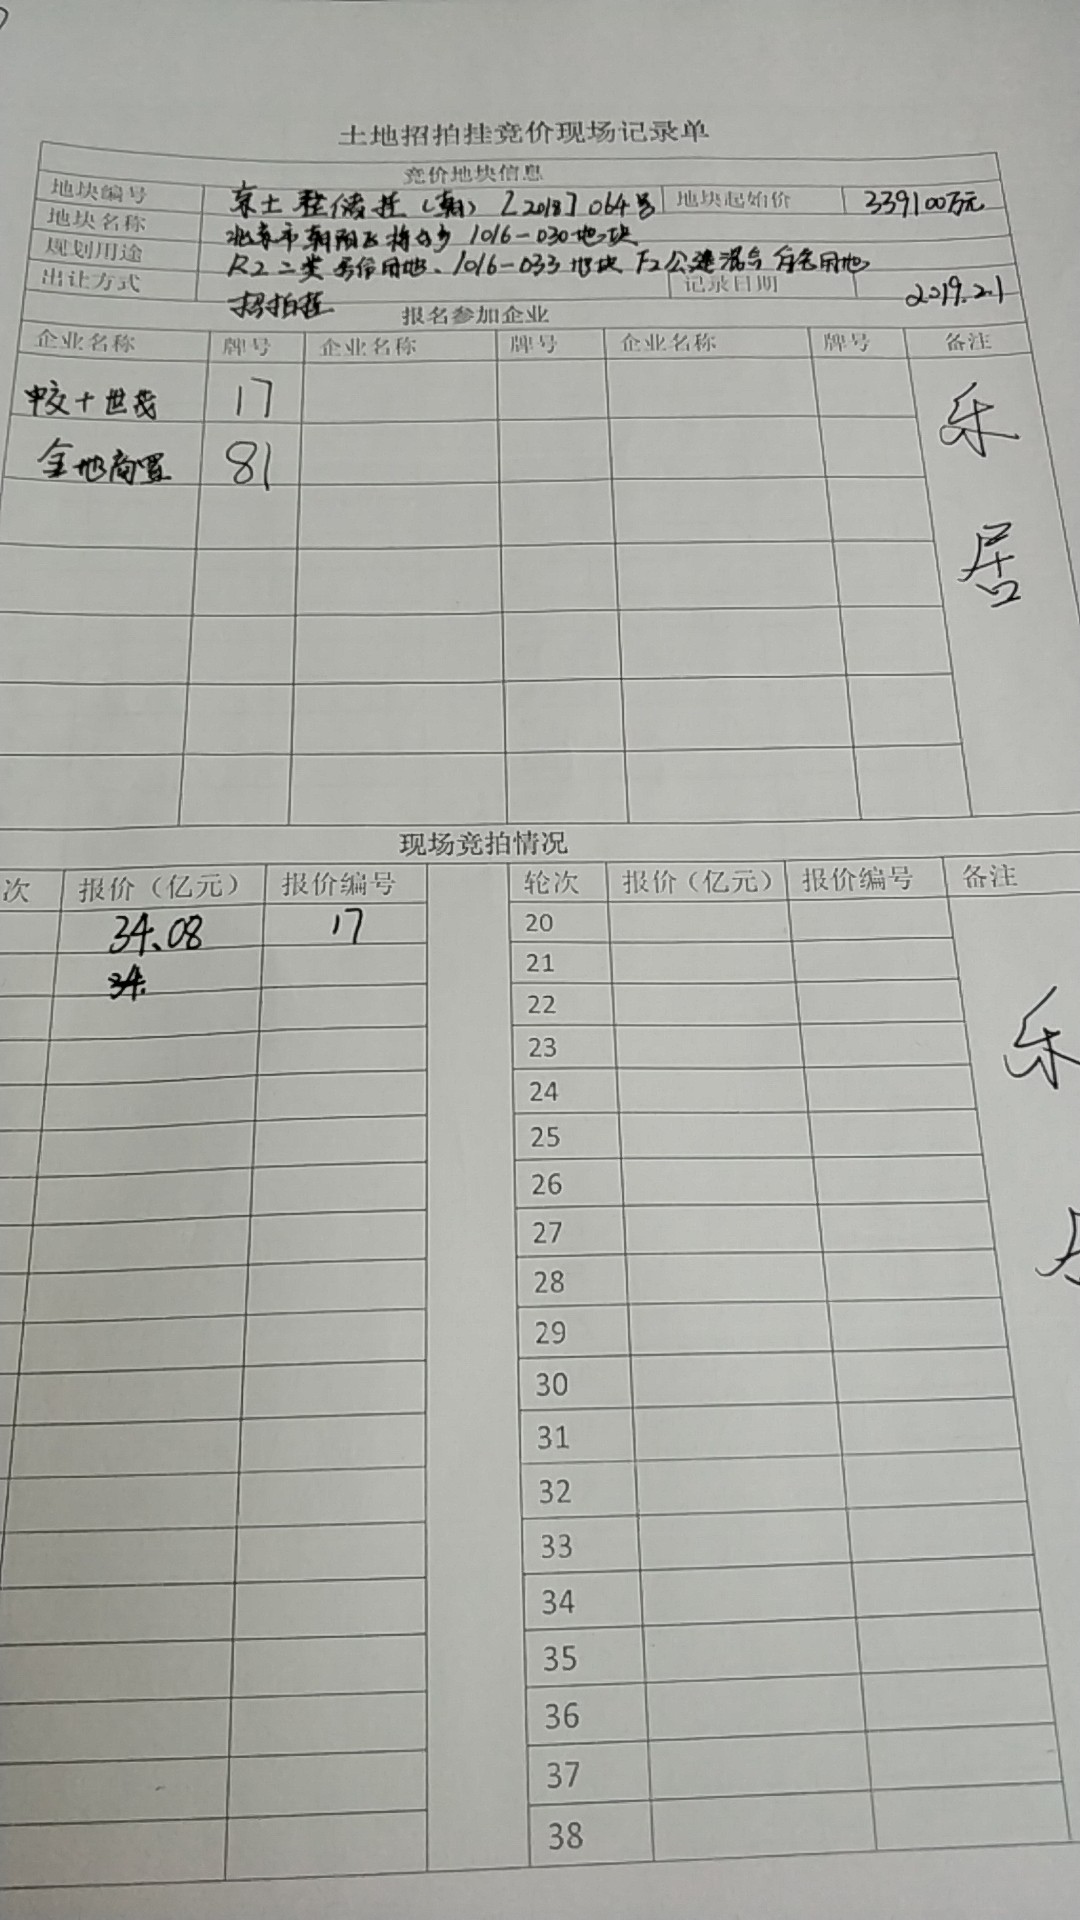 土地招拍挂竞价现场记录单
竞价地块信息
地块编号 京土整储挂(朝)[2018]064号 地块起始价 339100万元
地块名称 北京市朝阳区将台乡1016-030地块
规划用途 R2二类居住用地、1016-033地块F2公建混合住宅用地
出让方式 招拍挂 记录日期 2019.2.1
报名参加企业
企业名称 牌号 企业名称 牌号 企业名称 牌号 备注
中交+世茂 17
金地商置 81
乐
居
现场竞拍情况
次 报价(亿元) 报价编号 轮次 报价(亿元) 报价编号 备注
34.08 17 20
34. 21
22
23
乐
24
25
26
27
28
29
30
31
32
33
34
35
36
37
38